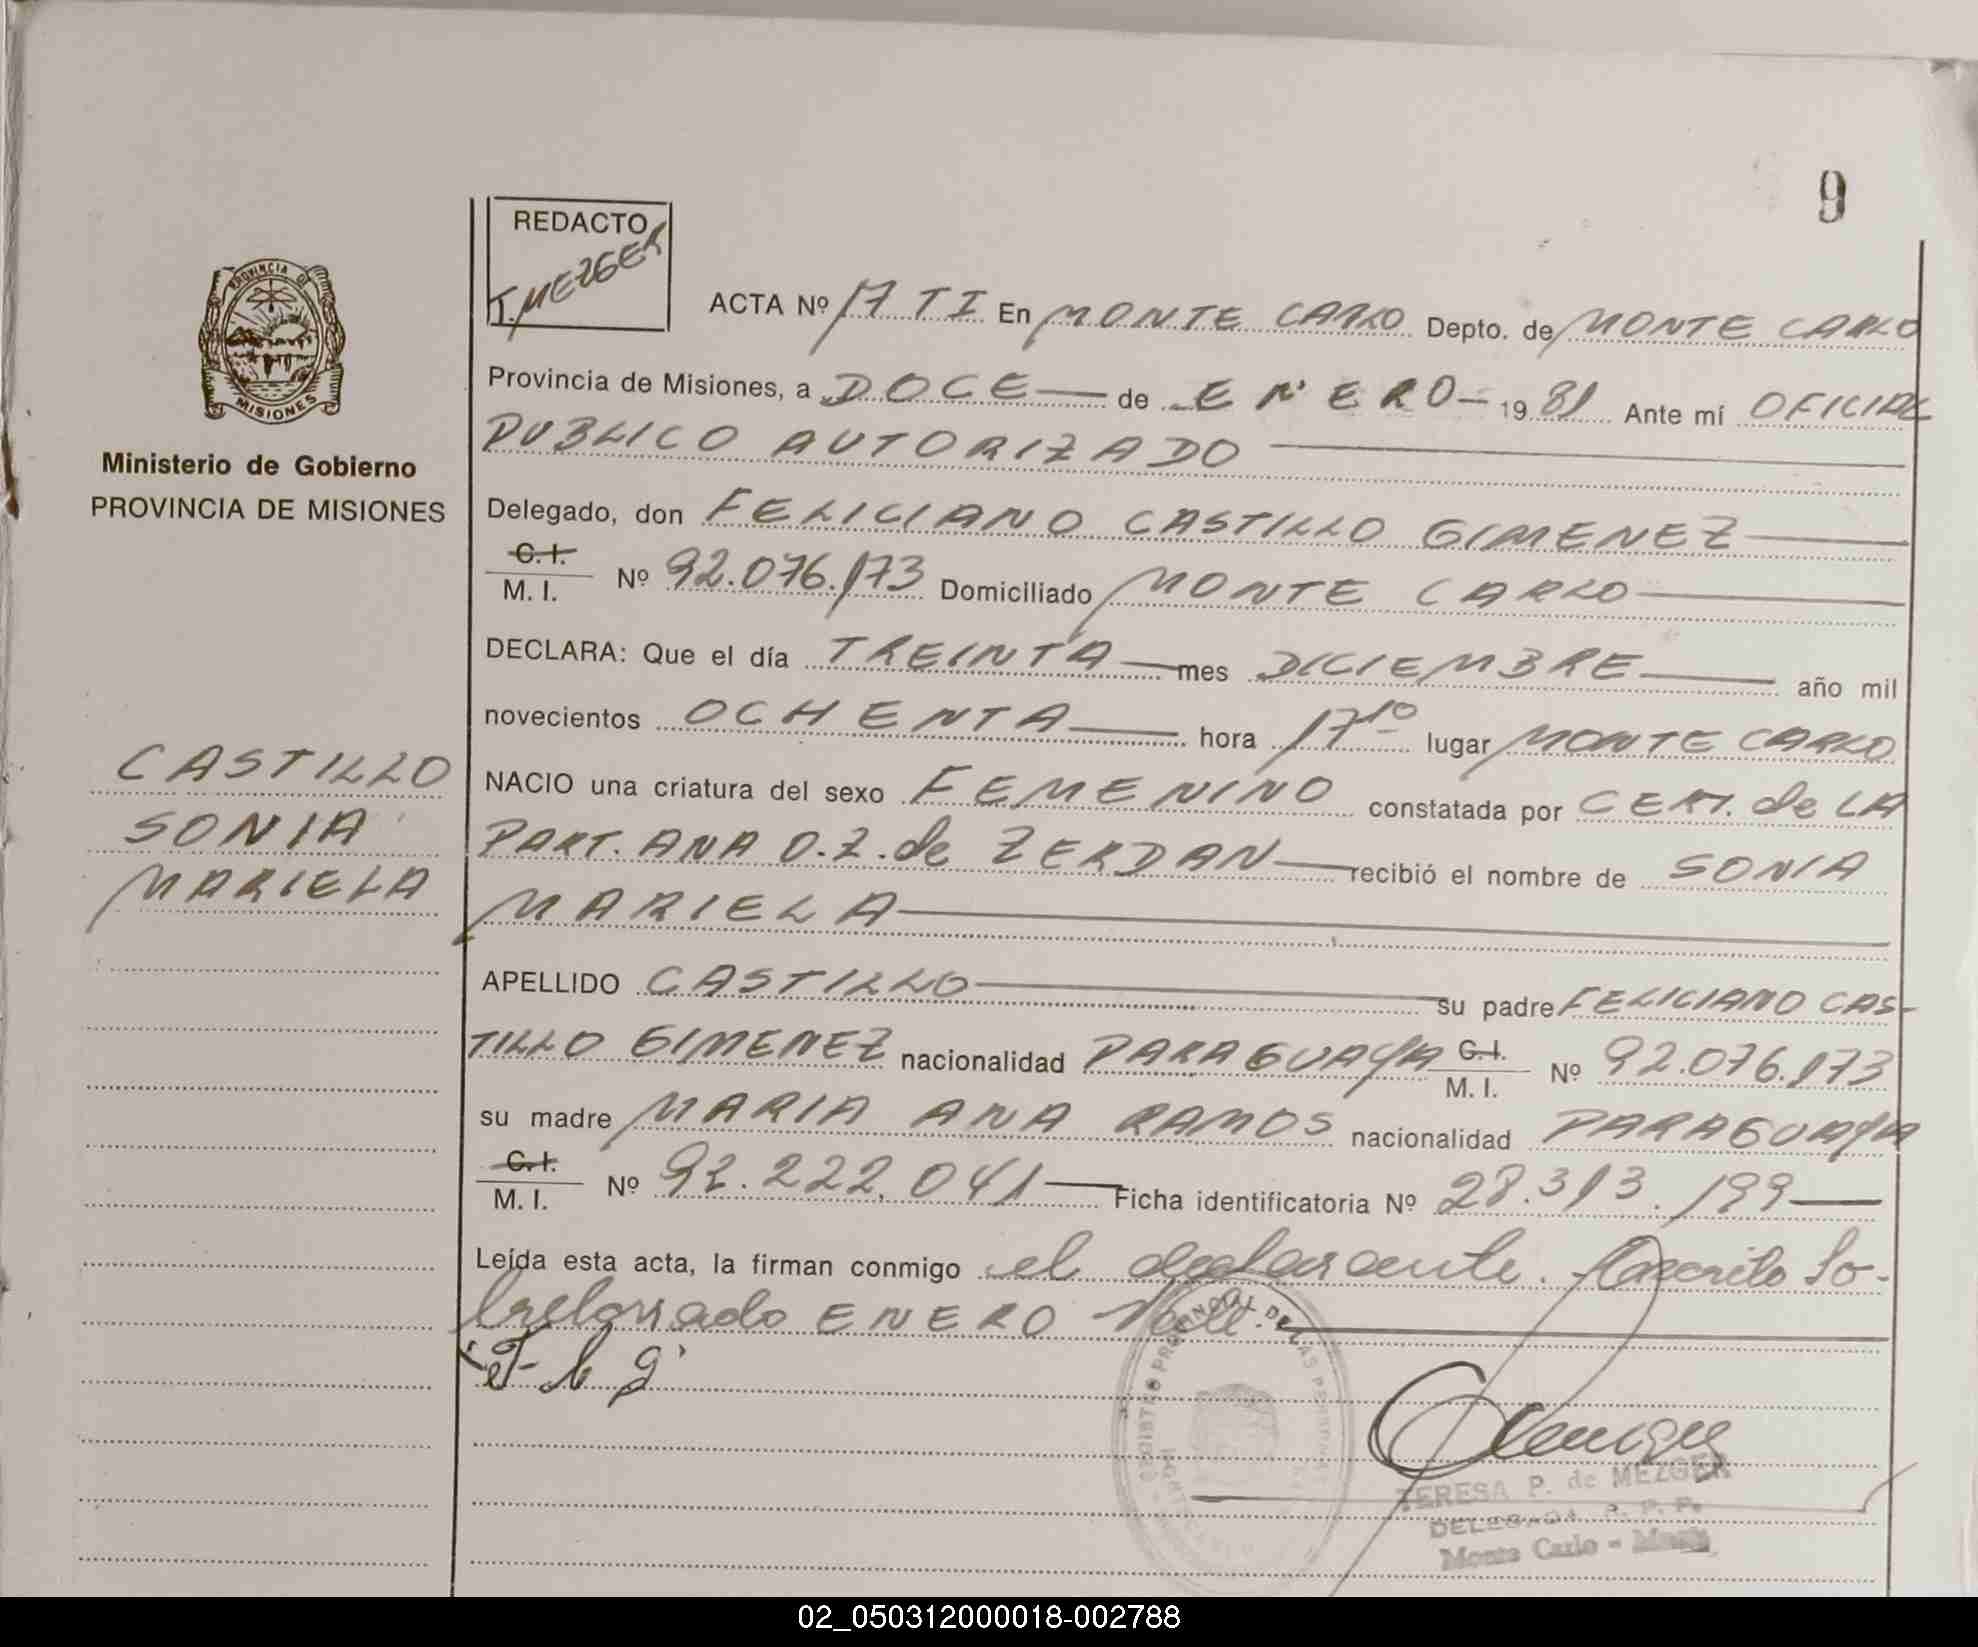 9
REDACTO
T. MEZGER
ACTA Nº 17 TI En MONTE CARLO Depto. de MONTE CARLO
Provincia de Misiones, a DOCE de ENERO 1981 Ante mí OFICIAL
PUBLICO AUTORIZADO
Delegado, don FELICIANO CASTILLO GIMENEZ
C.I.
M. I. Nº 92.076.173 Domiciliado MONTE CARLO
DECLARA: Que el día TREINTA mes DICIEMBRE año mil
novecientos OCHENTA hora 17 10 lugar MONTE CARLO
NACIO una criatura del sexo FEMENINO constatada por CERT. de LA
PART. ANA O.Z. de ZERDAN recibió el nombre de SONIA
MARIELA
APELLIDO CASTILLO su padre FELICIANO CAS-
TILLO GIMENEZ nacionalidad PARAGUAYA C.I. M. I. Nº 92.076.173
su madre MARIA ANA RAMOS nacionalidad PARAGUAYA
C.I.
M. I. Nº 92.222.041 Ficha identificatoria Nº 28.313.199
Leída esta acta, la firman conmigo el declarante. So-
breborrado ENERO Vale.
PROVINCIA DE
MISIONES
Ministerio de Gobierno
PROVINCIA DE MISIONES
CASTILLO
SONIA
MARIELA
PROVINCIAL DE LAS PERSONAS
TERESA P. de MEZGER
DELEGADA R. P. P.
Monte Carlo -
02_050312000018-002788